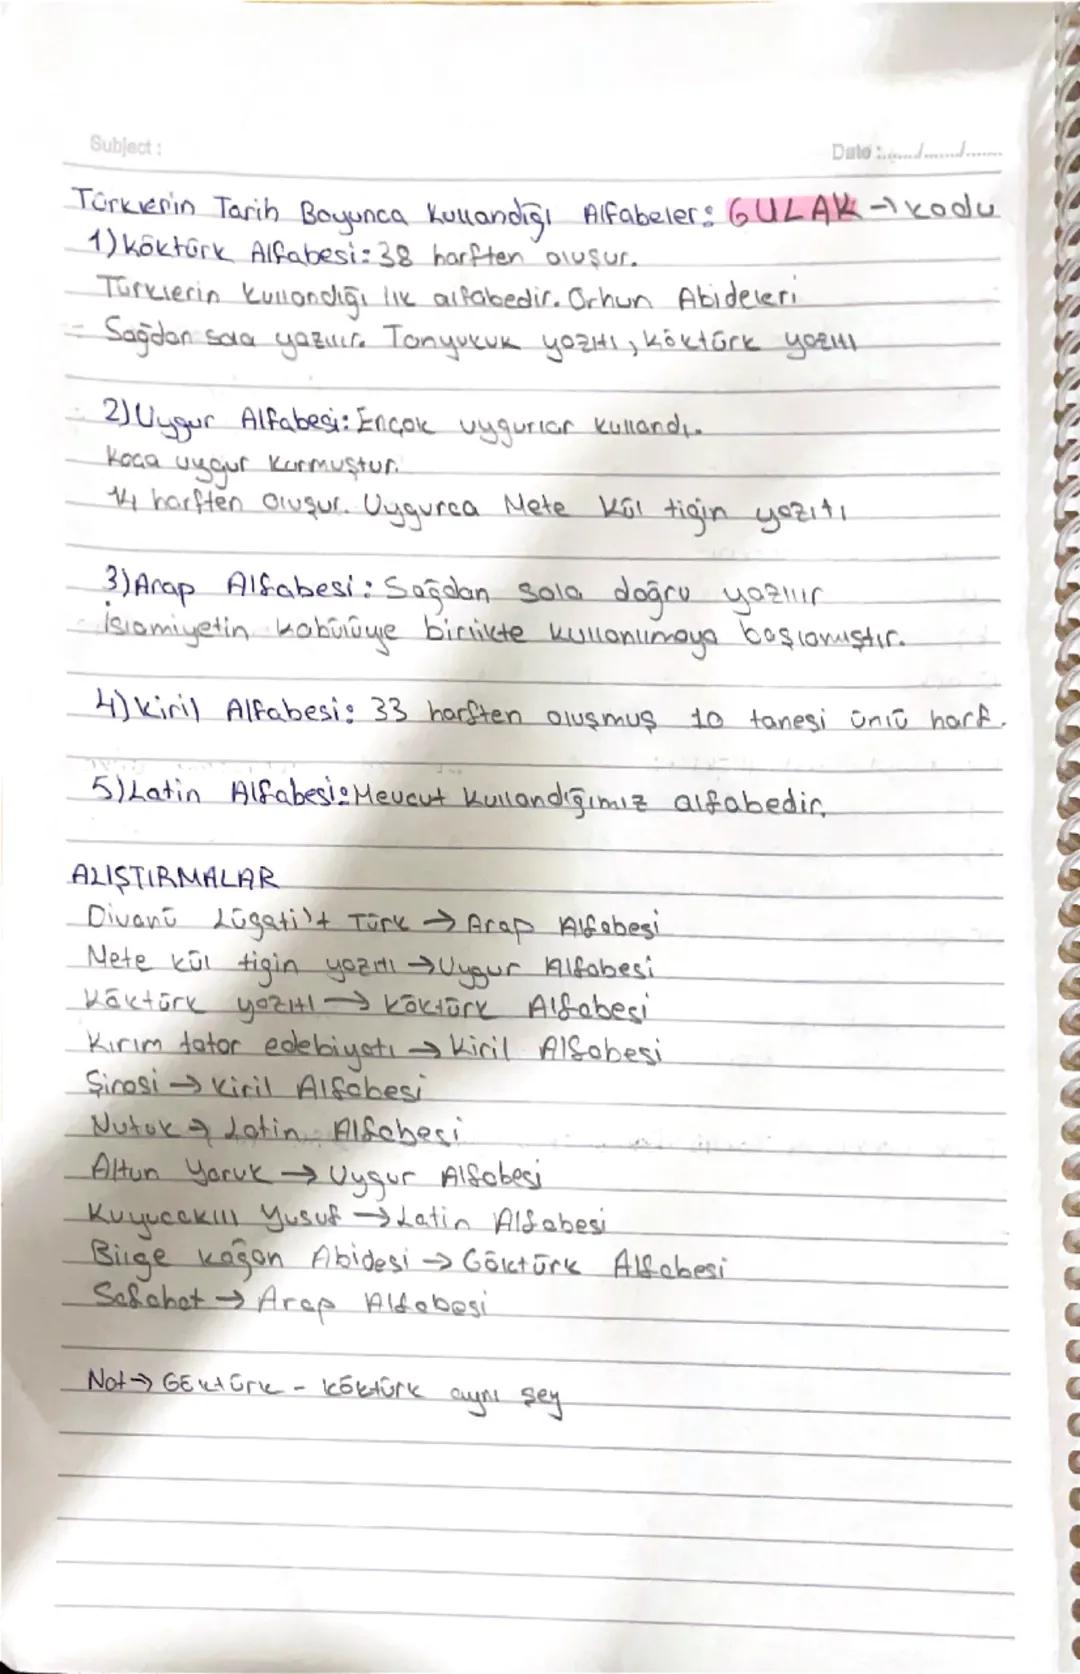 Subject :
Date :....../......./.......
Türklerin Tarih Boyunca Kullandığı Alfabeler: GULAK → kodu
1) Köktürk Alfabesi: 38 harften oluşur.
Türklerin kullandığı ilk alfabedir. Orhun Abideleri
- Sağdan sola yazılır. Tonyukuk yazıtı, Köktürk yazıtı
2) Uygur Alfabesi: Ençok uygurlar kullandı.
Koca uygur kurmuştur.
14 harften oluşur. Uygurca Mete Kül tigin yazıtı
3) Arap Alfabesi: Sağdan sola doğru yazılır
İslamiyetin kabülüyle birlikte kullanılmaya başlamıştır.
4) Kiril Alfabesi: 33 harften oluşmuş 10 tanesi ünlü harf.
5) Latin Alfabesi: Mevcut kullandığımız alfabedir.
ALIŞTIRMALAR
Divanü Lügati't Türk → Arap Alfabesi
Mete kül tigin yazıtı → Uygur Alfabesi
Köktürk yazıtı → Köktürk Alfabesi
Kırım tatar edebiyatı → Kiril Alfabesi
Şirasi → Kiril Alfabesi
Nutuk → Latin Alfabesi
Altun Yaruk → Uygur Alfabesi
Kuyucaklı Yusuf → Latin Alfabesi
Bilge kağan Abidesi → Göktürk Alfabesi
Safahat → Arap Alfabesi
Not → Göktürk - Köktürk aynı şey